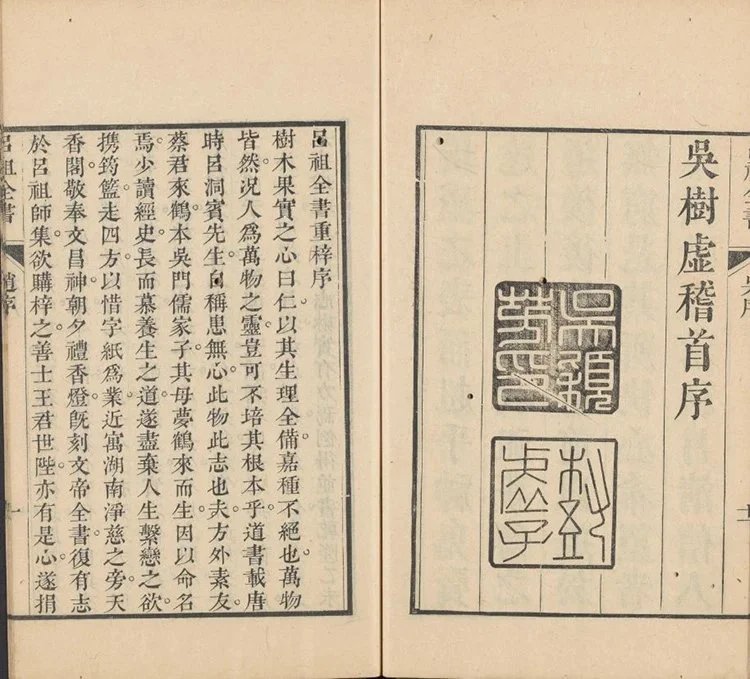 吳樹虛稽首序
吳穎芳印
呂祖全書重梓序
樹木果實之心曰仁。以其生理全備。嘉種不絕也。萬物
皆然。况人爲萬物之靈。豈可不培其根本乎。道書載唐
時呂洞賓先生。自稱患無心。此物此志也。夫方外素友
蔡君來鶴。本吳門儒家子。其母夢鶴來而生。因以命名
焉。少讀經史。長而慕養生之道。遂盡棄人生繫戀之欲。
携筠籃走四方。以惜字紙爲業。近寓湖南淨慈之旁。天
香閣。敬奉文昌神。朝夕禮香燈。既刻文帝全書。復有志
於呂祖師集。欲購梓之。善士王君世陛。亦有是心。遂捐
呂祖全書
趙序